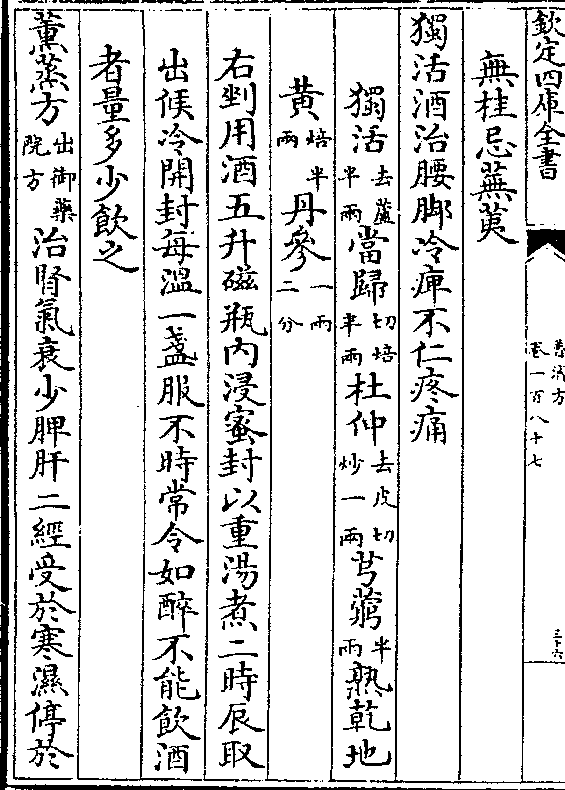 欽定四庫全書
普濟方
卷一百八十七
三十六
無桂忌蕪荑
獨活酒治腰脚冷痺不仁疼痛
獨活去蘆半兩當歸切焙半兩杜仲去皮切炒一兩芎藭半兩熟乾地
黃焙半兩丹參一兩二分
右剉用酒五升磁瓶内浸蜜封以重湯煮二時辰取
出候冷開封每溫一盞服不時常令如醉不能飲酒
者量多少飲之
薰蒸方出御藥院方治腎氣衰少脾肝二經受於寒濕停於